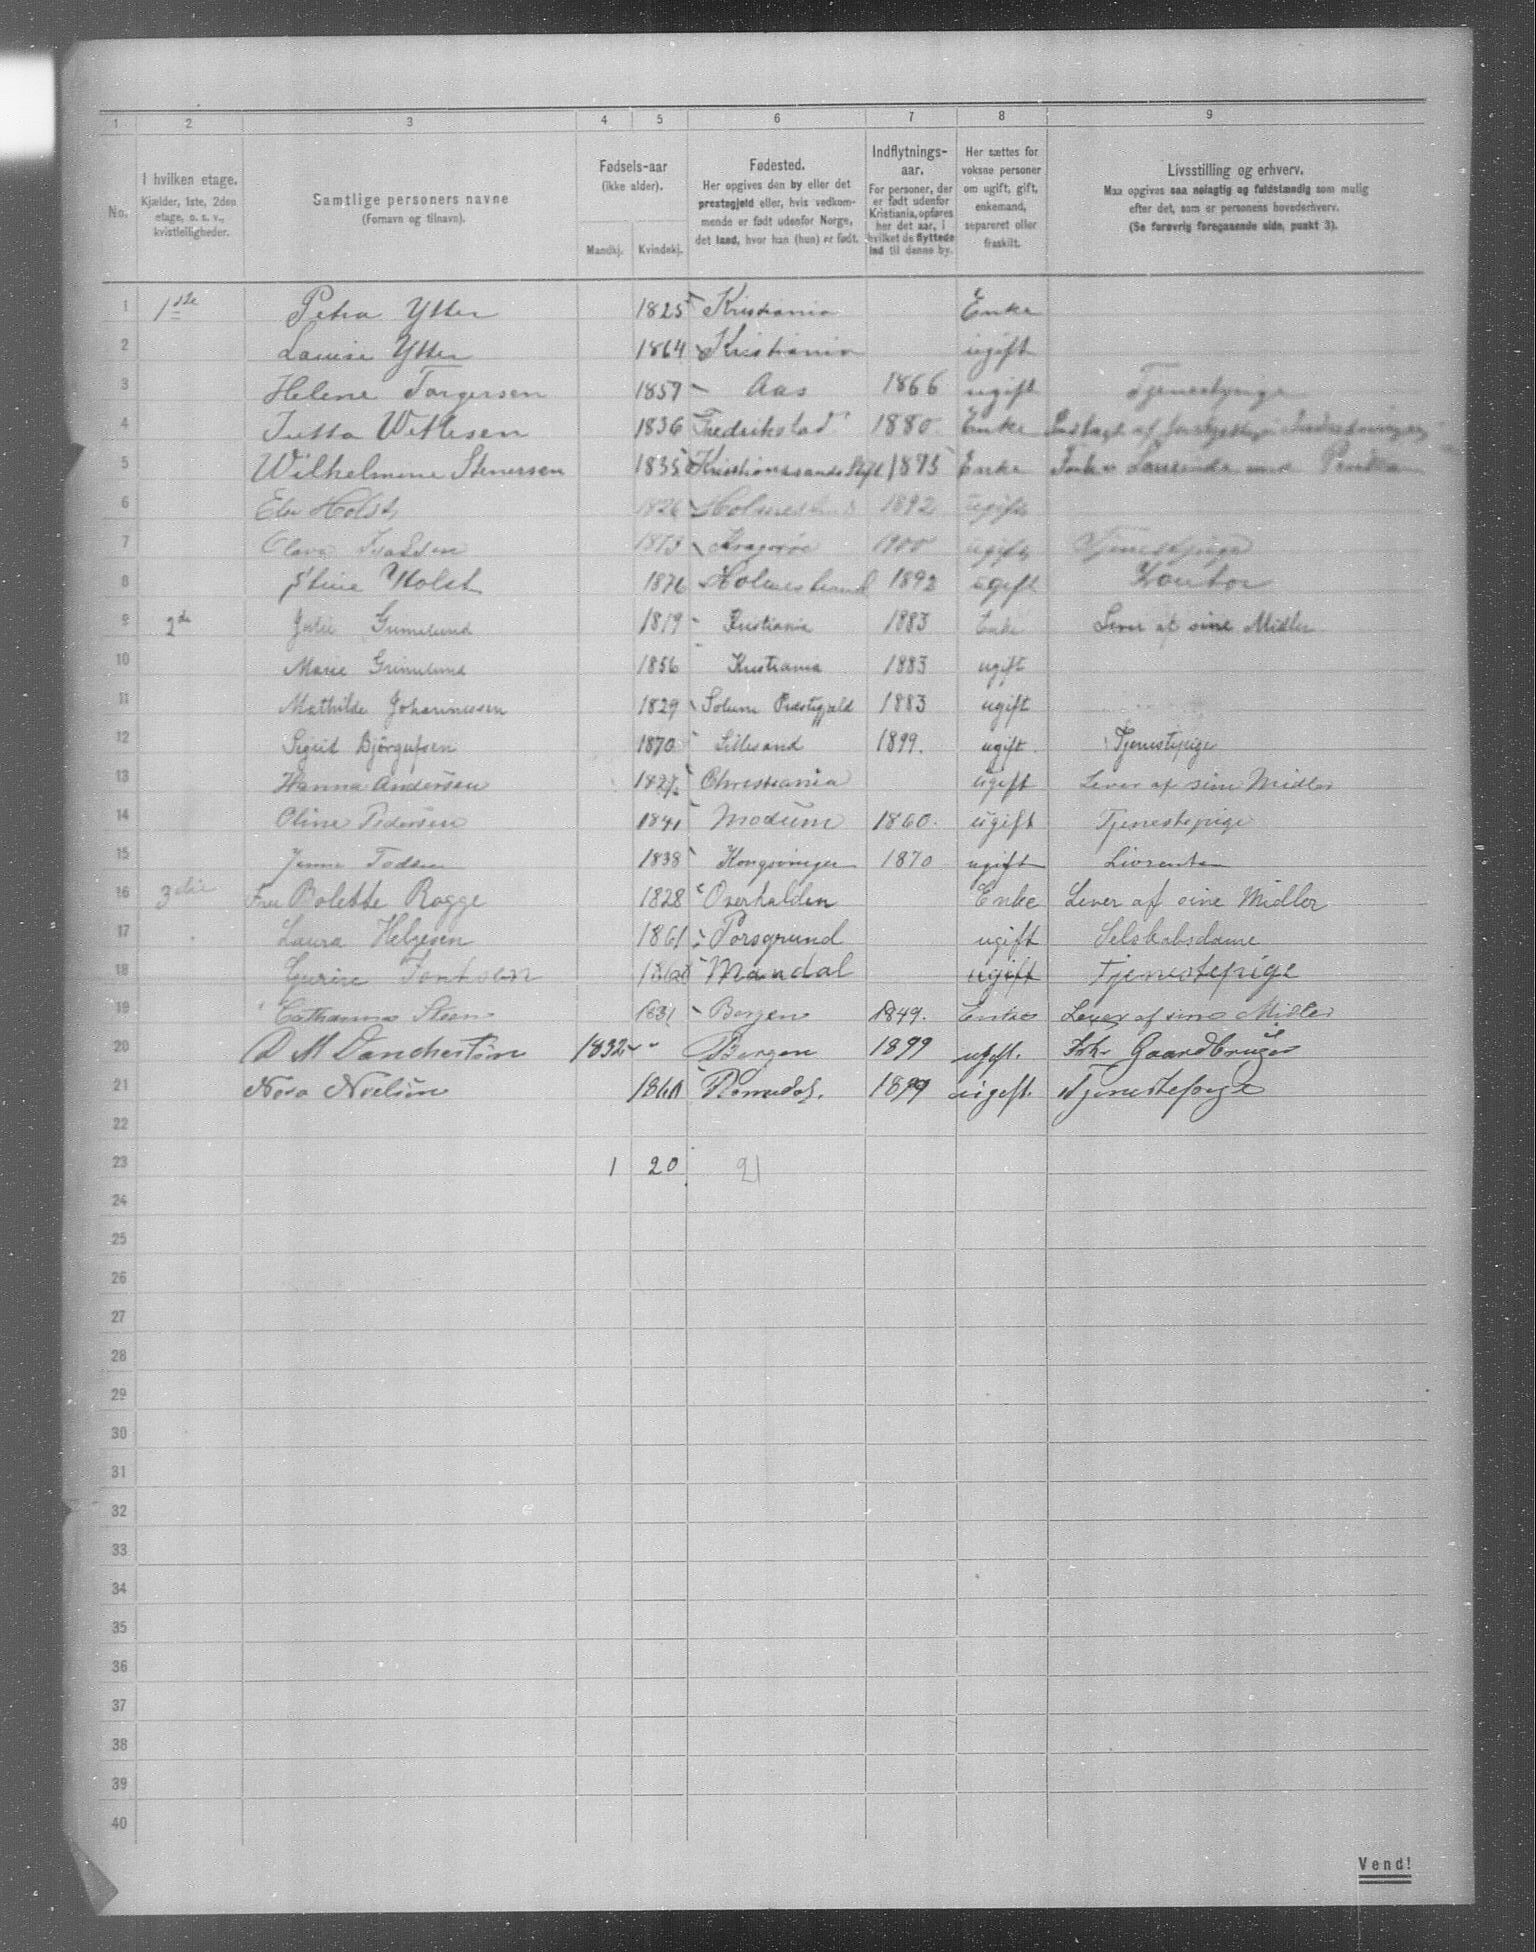 1 2 3 4 5 6 7 8 9
No.
I hvilken etage.
Kjælder, 1ste, 2den
etage, o. s. v.,
kvistleiligheder.
Samtlige personers navne
(Fornavn og tilnavn).
Fødsels-aar
(ikke alder).
Mandkj. Kvindekj.
Fødested.
Her opgives den by eller det
prestegjeld eller, hvis vedkom-
mende er født udenfor Norge,
det land, hvor han (hun) er født.
Indflytnings-
aar.
For personer, der
er født udenfor
Kristiania, opføres
her det aar, i
hvilket de flyttede
ind til denne by.
Her sættes for
voksne personer
om ugift, gift,
enkemand,
separeret eller
fraskilt.
Livsstilling og erhverv.
Maa opgives saa nøiagtig og fuldstændig som mulig
efter det, som er personens hovederhverv.
(Se forøvrig foregaaende side, punkt 3).
1 1ste Petra Ytter 1825 Kristiania Enke
2 Louise Ytter 1864 Kristiania ugift
3 Helene Torgersen 1857 Aas 1866 ugift Tjenestpige
4 Jutta Wittesen 1836 Fredrikstad 1880 Enke
5 Wilhelmine Stenersen 1835 Kristianssands Stift 1875 Enke
6 Holst 1826 1892 ugift
7 Olava 1873 Kragerøe 1900 ugift Tjenestpige
8 Stine Holst 1876 Holmestrand 1892 ugift Kontor
9 2de Julie Grimelund 1819 Kristiania 1883 Enke Lever af sine Midler
10 Marie Grimelund 1856 Kristiania 1883 ugift
11 Mathilde Johannessen 1829 Solum Præstegjæld 1883 ugift
12 Sigrid Bjørgufsen 1870 Lillesand 1899. ugift Tjenestepige
13 Hanna Andersen 1827 Christiania ugift Lever af sine Midler
14 Oline Pedersen 1841 Modum 1860. ugift Tjenestepige
15 1838 Kongsvinger 1870 ugift Livrente
16 3die Fru Bolette Rogge 1828 Overhalden Enke Lever af sine Midler
17 Laura Helgesen 1861 Porsgrund ugift Selskabsdame
18 Gurine Mandal ugift Tjenestepige
19 Cathanna Steen 1831 Bergen 1849. Enke Lever af sine Midler
20 D M Danchertsen 1832 " Bergen 1899 ugift. Fhv Gaardbruger
21 Nora Nielsen Romedal. 1899 ugift. Tjenestepige
22
23 1 20 21
24
25
26
27
28
29
30
31
32
33
34
35
36
37
38
39
40
Vend!